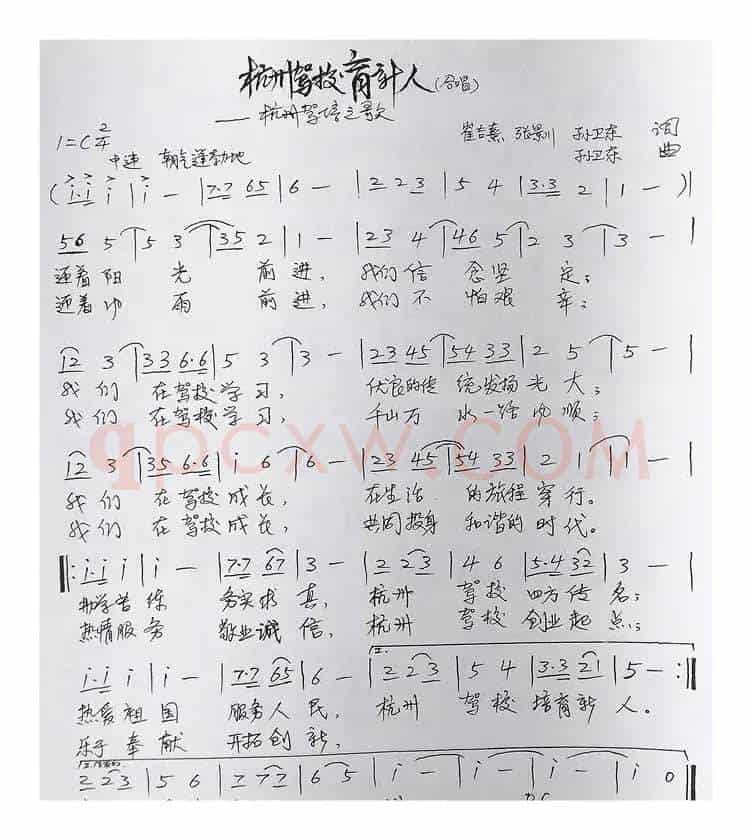 杭州驾校育新人(合唱)
——杭州驾培之歌
崔吉熹、张景川 孙卫东 词
孙卫东 曲
1=C 2/4
中速 朝气蓬勃地
(i·i i | i — | 7·7 65 | 6 — | 2 2 3 | 5 4 | 3·3 2 | 1 — )|
56 5 | 5 3 | 35 2 | 1 — | 23 4 | 46 5 | 2 3 | 3 — |
迎着阳 光 前 进, 我们信 念坚 定;
迎着沙 雨 前 进, 我们不 怕艰 辛;
12 3 | 33 6·6 | 5 3 | 3 — | 23 45 | 54 33 | 2 5 | 5 — |
我们 在驾校学习, 优良的传 统发扬光大;
我们 在驾校学习, 千山万 水一路 顺;
12 3 | 35 6·6 | i 6 | 6 — | 23 45 | 54 33 | 2 1 | 1 — |
我们 在驾校成长, 在生活 的旅程穿行。
我们 在驾校成长, 共同投身 和谐的时代。
‖: i·i i | i — | 7·7 67 | 3 — | 2 2 3 | 4 6 | 5·4 32 | 3 — |
勤学苦练 务实求真, 杭州 驾校四方传名;
热情服务 敬业诚信, 杭州 驾校创业起点;
i·i i | i — | 7·7 65 | 6 — | 2 2 3 | 5 4 | 3·3 21 | 5 — :‖
热爱祖国 服务人民, 杭州 驾校培育新人。
乐于奉献 开拓创新,
2 2 3 | 5 6 | 2 7 2 | 6 5 | i — | i — | i — | i 0 ‖
D.C.
qpcxw.COM